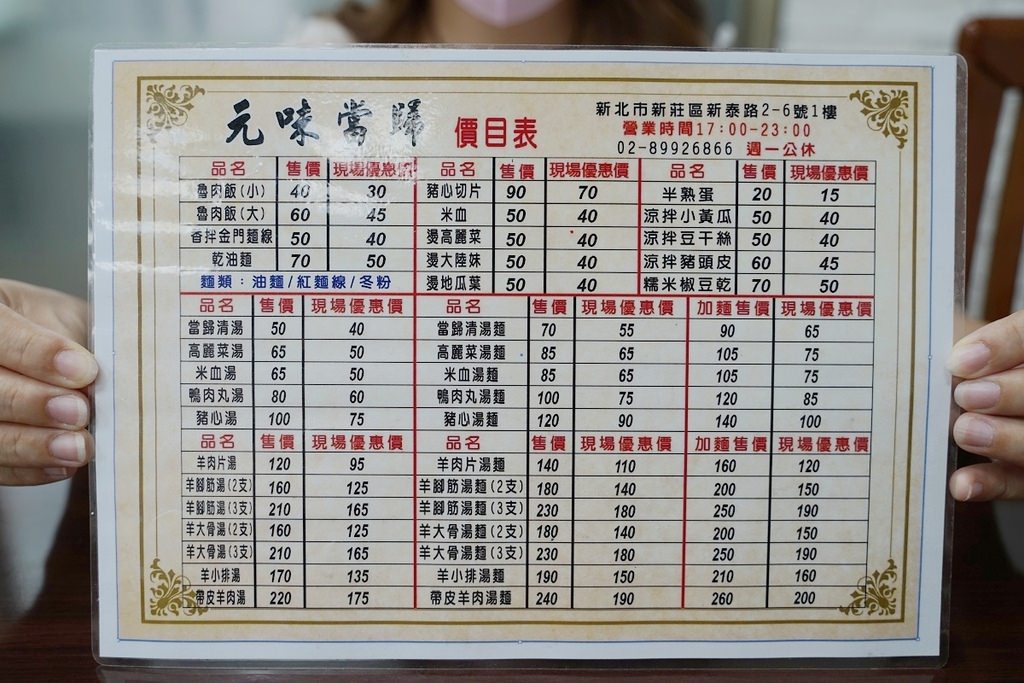 元味當歸 價目表
新北市新莊區新泰路2-6號1樓
營業時間17:00-23:00
02-89926866 週一公休
品名 售價 現場優惠價 品名 售價 現場優惠價 品名 售價 現場優惠價
魯肉飯(小) 40 30 豬心切片 90 70 半熟蛋 20 15
魯肉飯(大) 60 45 米血 50 40 涼拌小黃瓜 50 40
香拌金門麵線 50 40 燙高麗菜 50 40 涼拌豆干絲 50 40
乾油麵 70 50 燙大陸妹 50 40 涼拌豬頭皮 60 45
麵類：油麵/紅麵線/冬粉 燙地瓜葉 50 40 糯米椒豆乾 70 50
品名 售價 現場優惠價 品名 售價 現場優惠價 加麵售價 現場優惠價
當歸清湯 50 40 當歸清湯麵 70 55 90 65
高麗菜湯 65 50 高麗菜湯麵 85 65 105 75
米血湯 65 50 米血湯麵 85 65 105 75
鴨肉丸湯 80 60 鴨肉丸湯麵 100 75 120 85
豬心湯 100 75 豬心湯麵 120 90 140 100
品名 售價 現場優惠價 品名 售價 現場優惠價 加麵售價 現場優惠價
羊肉片湯 120 95 羊肉片湯麵 140 110 160 120
羊腳筋湯(2支) 160 125 羊腳筋湯麵(2支) 180 140 200 150
羊腳筋湯(3支) 210 165 羊腳筋湯麵(3支) 230 180 250 190
羊大骨湯(2支) 160 125 羊大骨湯麵(2支) 180 140 200 150
羊大骨湯(3支) 210 165 羊大骨湯麵(3支) 230 180 250 190
羊小排湯 170 135 羊小排湯麵 190 150 210 160
帶皮羊肉湯 220 175 帶皮羊肉湯麵 240 190 260 200